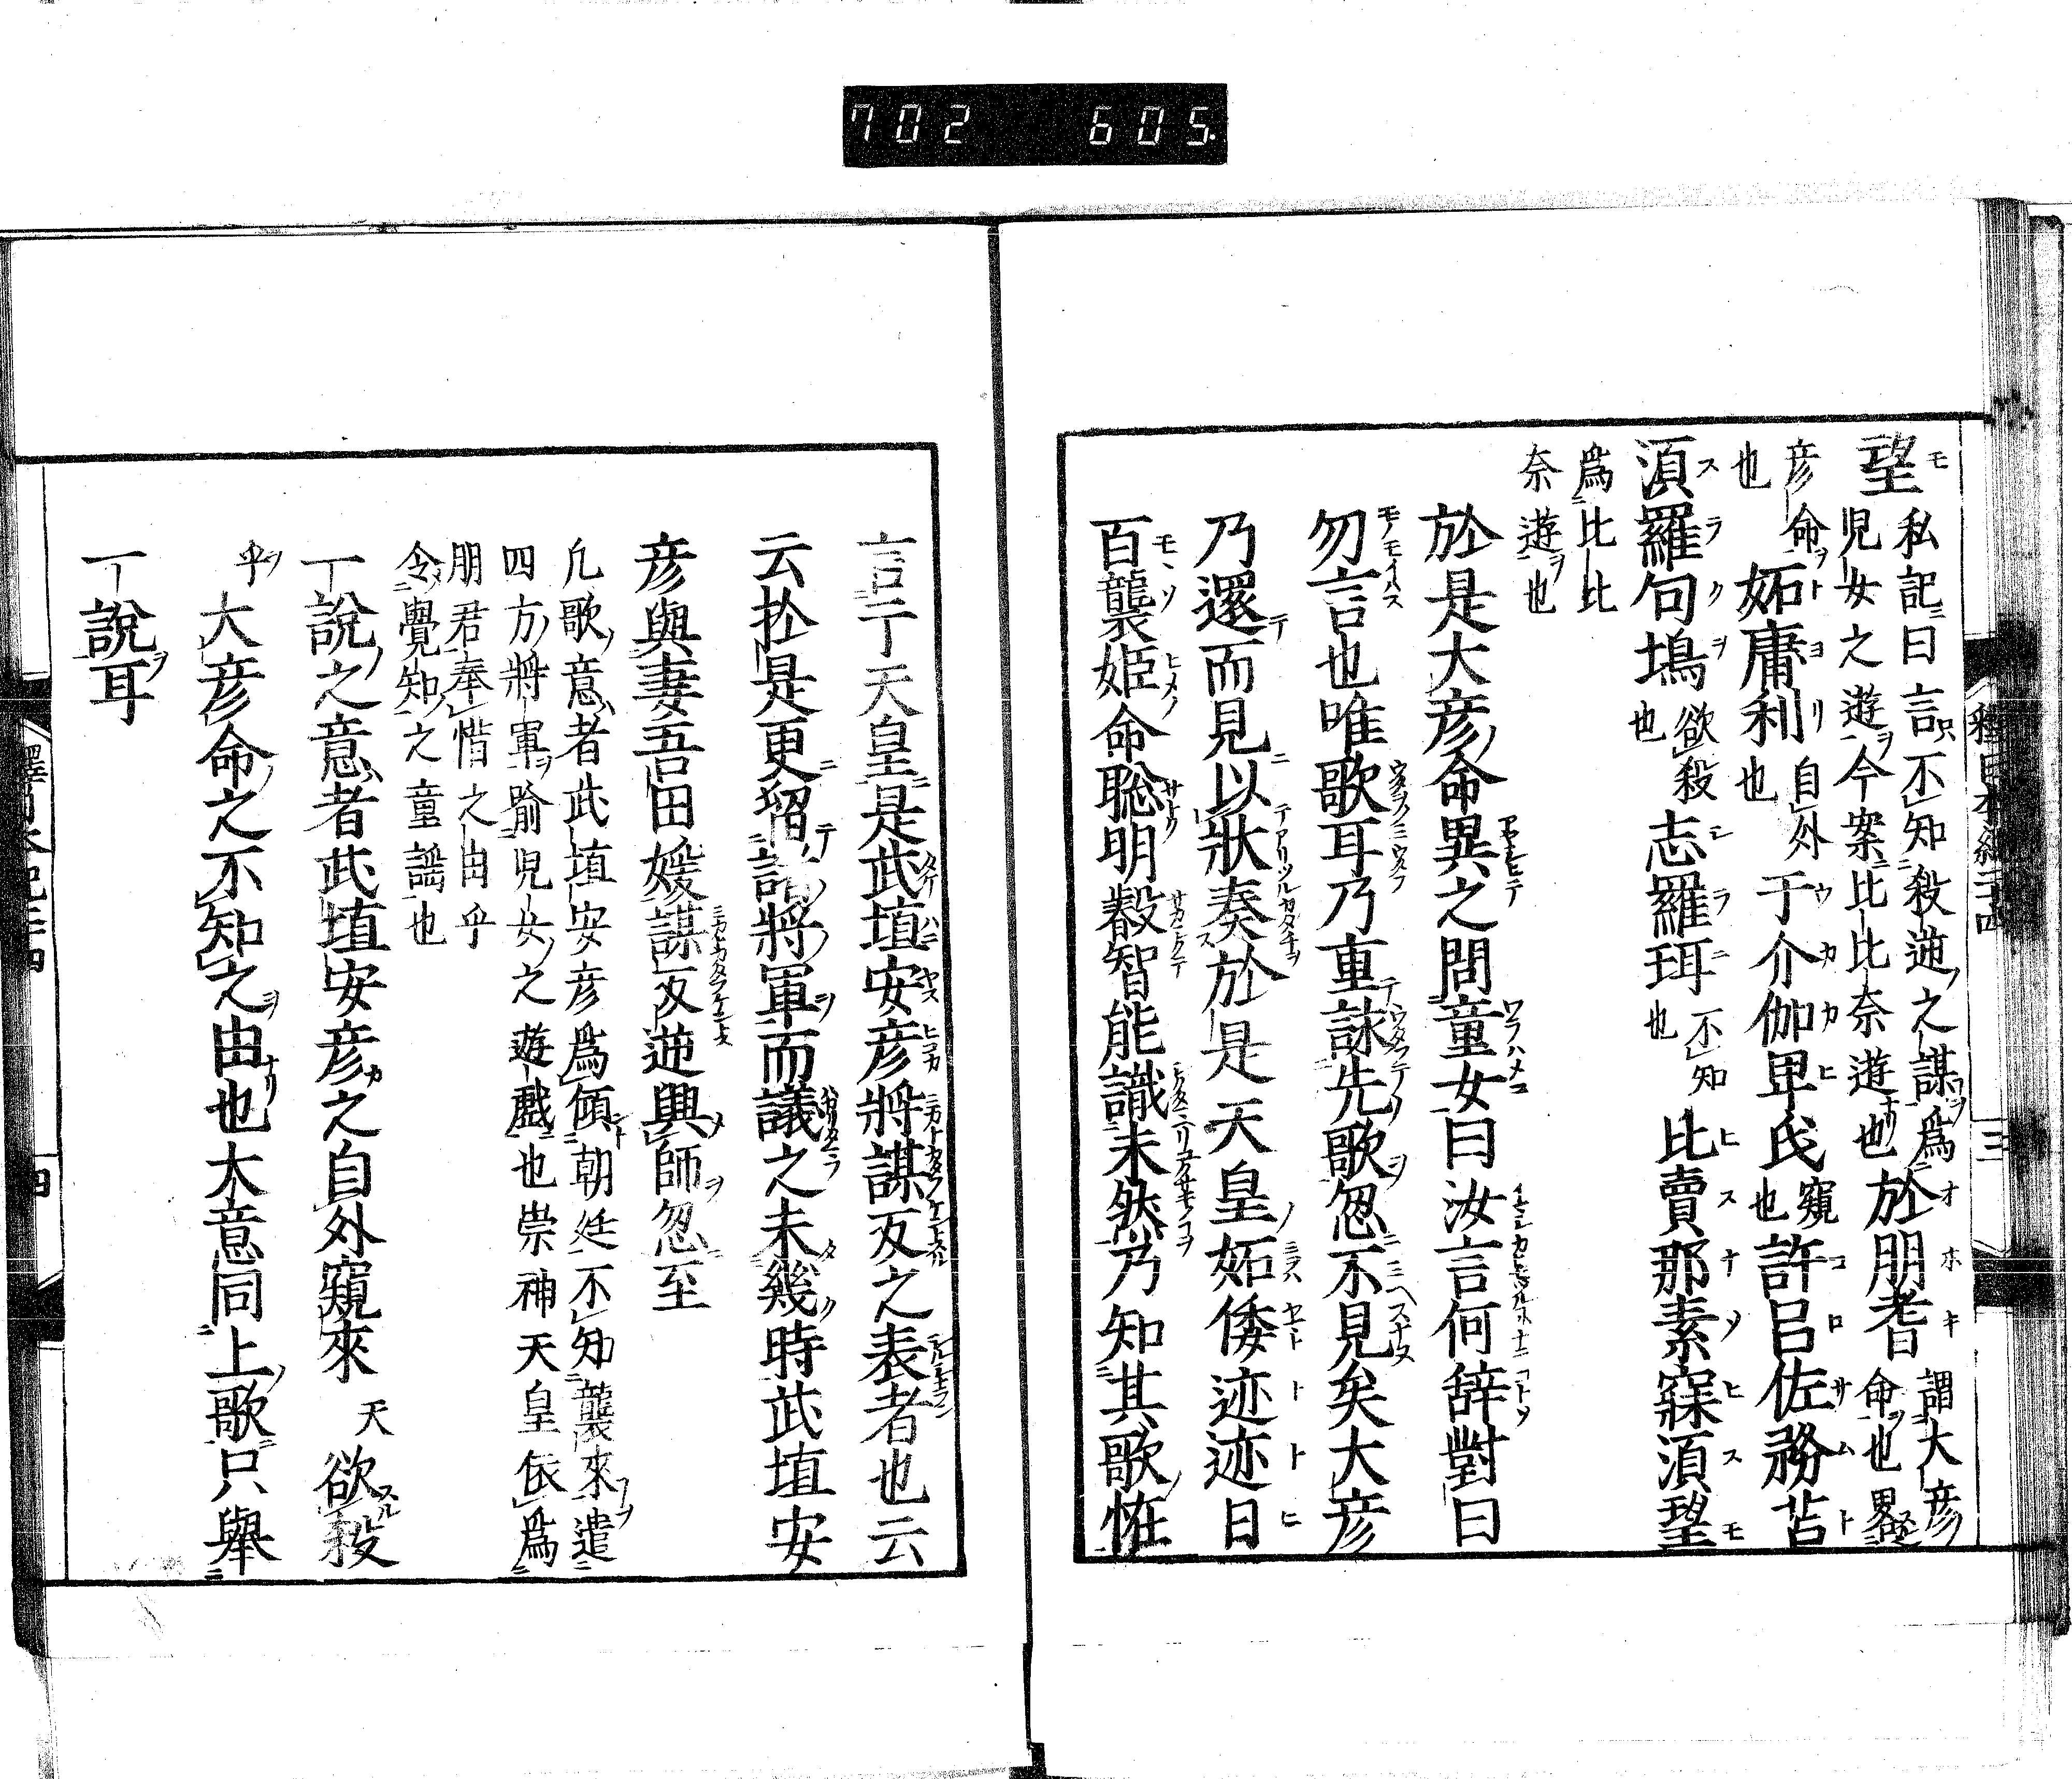 702 605
望 私記曰言不知殺逆之謀為
児女之遊今案比比奈遊也 於朋耆 謂大彦
命也畧
彦命
也 妬庸利 自外
也 于介伽卑氐 窺
也 許呂佐務苫
湏羅句塢 欲殺
也 志羅珥 不知
也 比賣那素寐湏望
為比比
奈遊也
於是大彦命異之問童女曰汝言何辞對曰
勿言也唯歌耳乃重詠先歌忽不見矣大彦
乃還而見以狀奏於是天皇姑倭迹迹日
百襲姫命聡明叡智能識未然乃知其歌恠
釋日本紀二十四 三
言于天皇是武埴安彦將謀反之表者也云
云扵是更留諸將軍而議之未幾時武埴安
彦與妻吾田媛謀反逆興師忽至
凢歌意者武埴安彦為傾朝廷不知襲來遣
四方將軍喩児女之遊戯也崇神天皇依為
朋君奉惜之由乎
令覺知之童謡也
一説之意者武埴安彦之自外窺來 天 欲殺
乎 大彦命之不知之由也大意同上歌只舉
一説耳
四